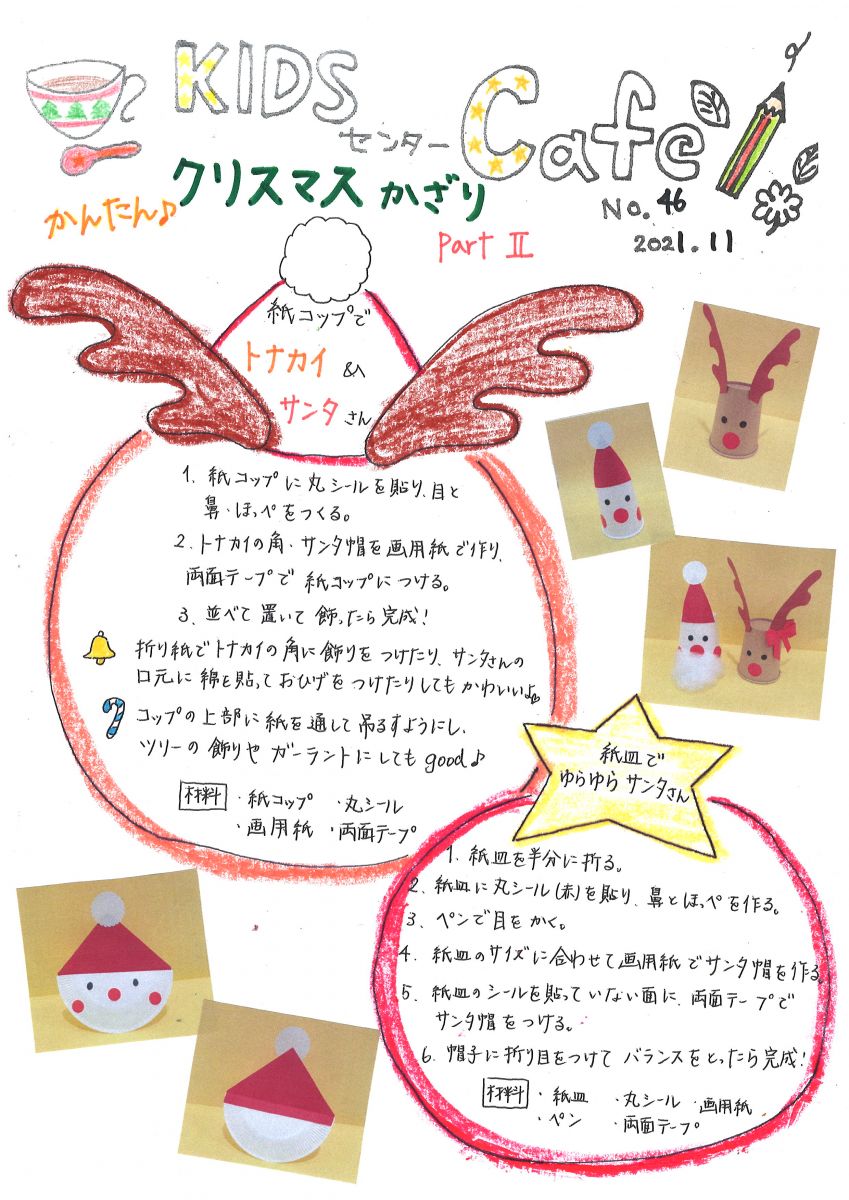 KIDS
センター
Cafe
クリスマスかざり
かんたん♪
No.46
Part Ⅱ
2021.11
紙コップで
トナカイ &
サンタさん
1. 紙コップに丸シールを貼り、目と
鼻・ほっぺをつくる。
2. トナカイの角・サンタ帽を画用紙で作り、
両面テープで紙コップにつける。
3. 並べて置いて飾ったら完成!
折り紙でトナカイの角に飾りをつけたり、サンタさんの
口元に綿を貼っておひげをつけたりしてもかわいいよ♡
コップの上部に紙を通して吊るすようにし、
ツリーの飾りやガーラントにしてもgood♪
材料 ・紙コップ ・丸シール
・画用紙 ・両面テープ
紙皿で
ゆらゆらサンタさん
1. 紙皿を半分に折る。
2. 紙皿に丸シール(赤)を貼り、鼻とほっぺを作る。
3. ペンで目をかく。
4. 紙皿のサイズに合わせて画用紙でサンタ帽を作る
5. 紙皿のシールを貼っていない面に、両面テープで
サンタ帽をつける。
6. 帽子に折り目をつけてバランスをとったら完成!
材料 ・紙皿 ・丸シール ・画用紙
・ペン ・両面テープ